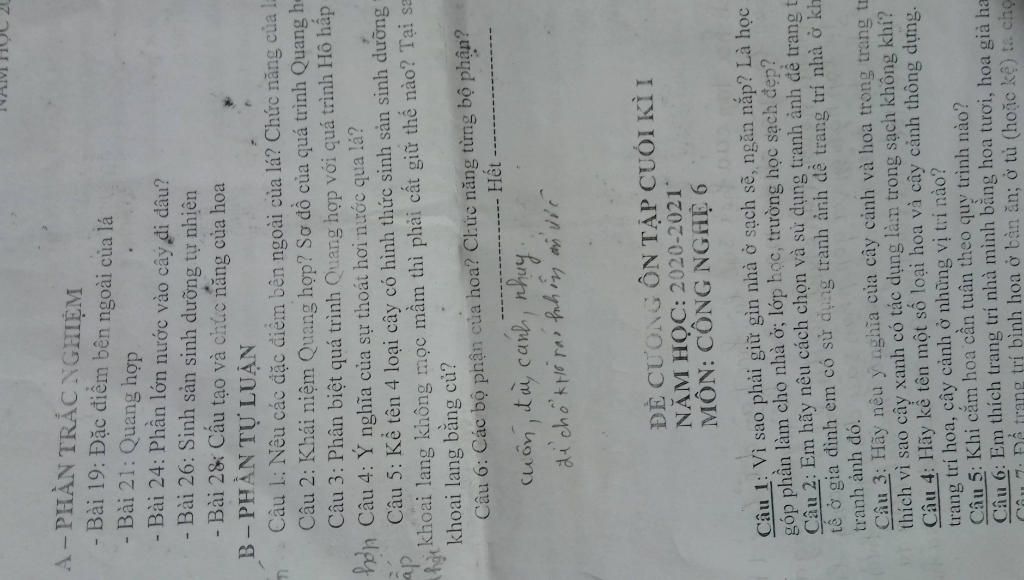 NĂM HỌC 20
A – PHẦN TRẮC NGHIỆM
- Bài 19: Đặc điểm bên ngoài của lá
- Bài 21: Quang hợp
- Bài 24: Phần lớn nước vào cây đi đâu?
- Bài 26: Sinh sản sinh dưỡng tự nhiên
- Bài 28: Cấu tạo và chức năng của hoa
B – PHẦN TỰ LUẬN
Câu 1: Nêu các đặc điểm bên ngoài của lá? Chức năng của lá
Câu 2: Khái niệm Quang hợp? Sơ đồ của quá trình Quang hợ
Câu 3: Phân biệt quá trình Quang hợp với quá trình Hô hấp
Câu 4: Ý nghĩa của sự thoát hơi nước qua lá?
Câu 5: Kể tên 4 loại cây có hình thức sinh sản sinh dưỡng
khoai lang không mọc mầm thì phải cất giữ thế nào? Tại sa
khoai lang bằng củ?
Câu 6: Các bộ phận của hoa? Chức năng từng bộ phận?
Hết
cuốn, đài, cánh, nhuy
ĐỀ CƯƠNG ÔN TẬP CUỐI KÌ I
NĂM HỌC: 2020-2021
MÔN: CÔNG NGHỆ 6
Câu 1: Vì sao phải giữ gìn nhà ở sạch sẽ, ngăn nắp? Là học
góp phần làm cho nhà ở; lớp học, trường học sạch đẹp?
Câu 2: Em hãy nêu cách chọn và sử dụng tranh ảnh để trang t
tế ở gia đình em có sử dụng tranh ảnh để trang trí nhà ở kh
tranh ảnh đó.
Câu 3: Hãy nêu ý nghĩa của cây cảnh và hoa trong trang tr
thích vì sao cây xanh có tác dụng làm trong sạch không khí?
Câu 4: Hãy kể tên một số loại hoa và cây cảnh thông dụng.
trang trí hoa, cây cảnh ở những vị trí nào?
Câu 5: Khi cắm hoa cần tuân theo quy trình nào?
Câu 6: Em thích trang trí nhà mình bằng hoa tươi, hoa giả ha
Câu 7: Để trang trí bình hoa ở bàn ăn; ở tủ (hoặc kệ) ta chọ